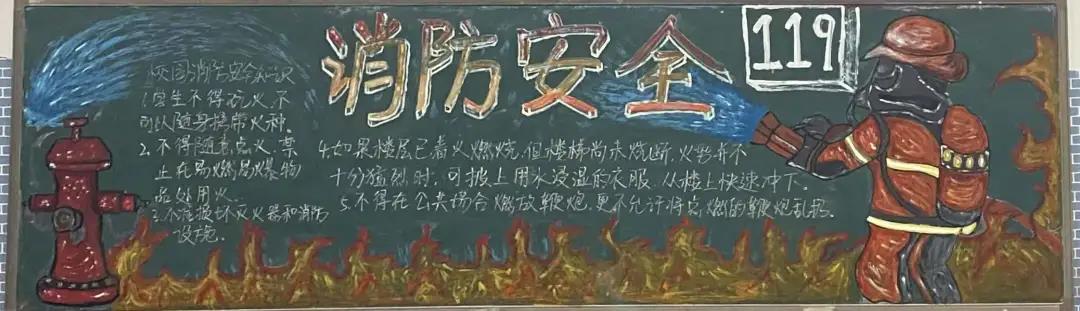 消防安全
119
校园消防安全知识
1.学生不得玩火、不
可以随身携带火种。
2.不得随意点火,禁
止在易燃易爆物
品处用火。
3.不准损坏灭火器和消防
设施。
4.如果楼层已着火燃烧,但楼梯尚未烧断,火势并不
十分猛烈时,可披上用水浸湿的衣服,从楼上快速冲下。
5.不得在公共场合燃放鞭炮,更不允许将点燃的鞭炮乱扔。